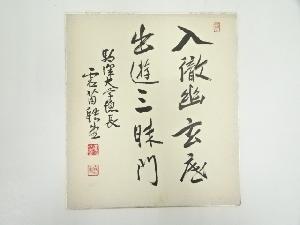 入徹幽玄底
出遊三昧門
駒澤大学総長